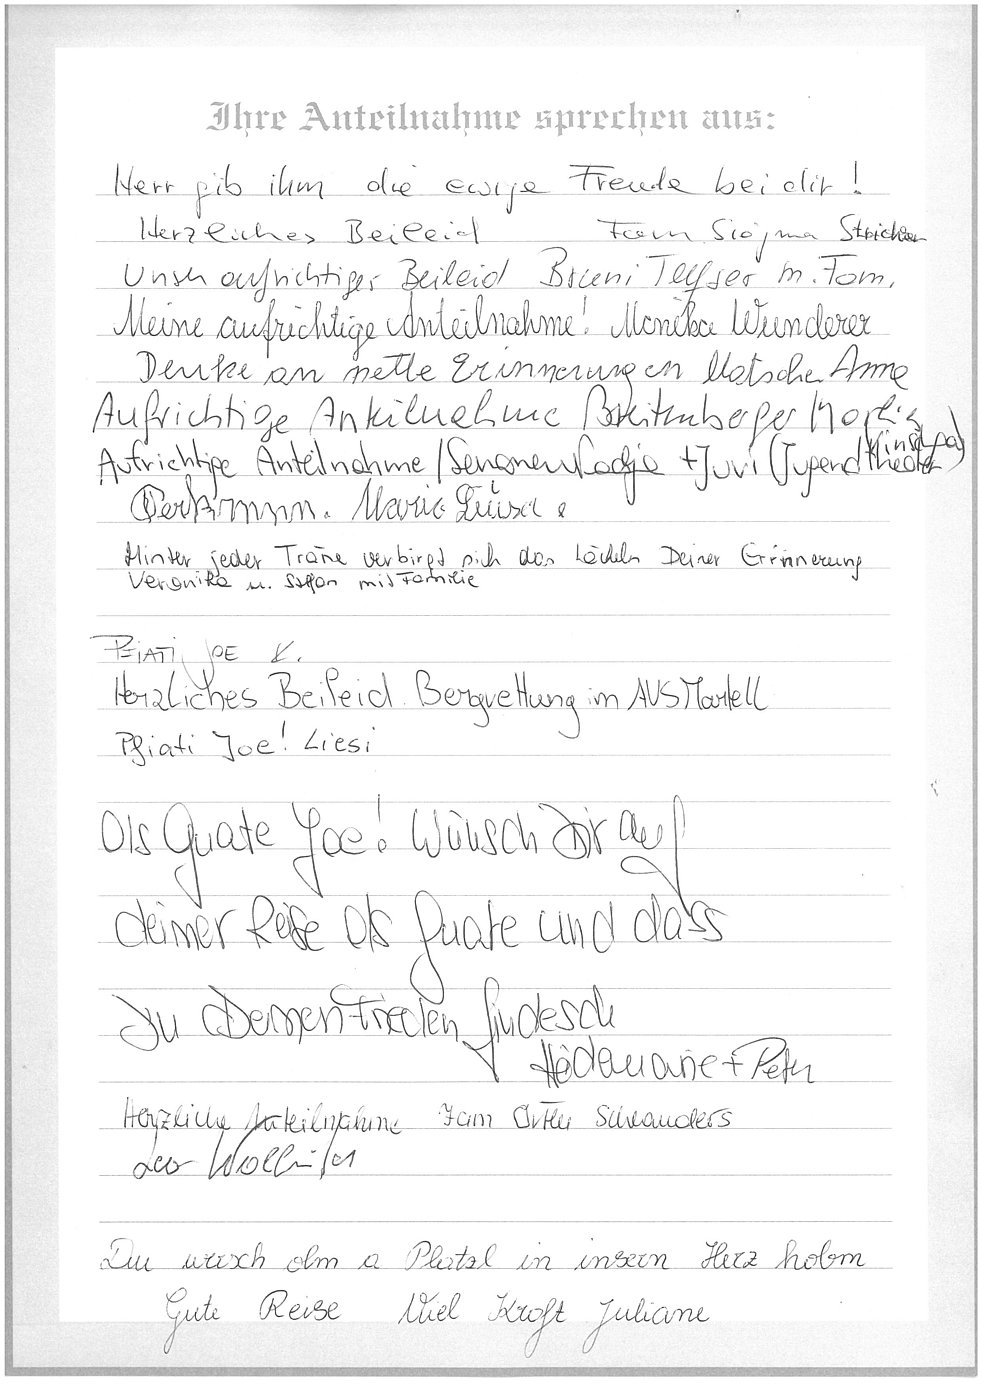 Ihre Anteilnahme sprechen aus:
Herr gib ihm die ewige Freude bei dir!
Herzliches Beileid Fam. Sigma Stricker
Unser aufrichtiges Beileid Bruni Telfser m. Fam.
Meine aufrichtige Anteilnahme! Monika Wunderer
Denke an nette Erinnerungen Matscher Anna
Aufrichtige Anteilnahme Breitenberger Martin
Aufrichtige Anteilnahme Nadja + Juri (Jugendtheater
Vinschgau)
Maria Luisa
Hinter jeder Träne verbirgt sich das Lächeln Deiner Erinnerung
Veronika u. Stefan mit Familie
PFIATI JOE K.
Herzliches Beileid Bergrettung im AVS Martell
Pfiati Joe! Liesi
Ols Guate Joe! Wünsch Dir auf
deiner Reise ols Guate und dass
du Deinen Frieden findesch
Heidemarie + Peter
Herzliche Anteilnahme Fam Ortler Schlanders
Leo
Du wirsch olm a Platzl in insern Herz hobm
Gute Reise Viel Kroft Juliane